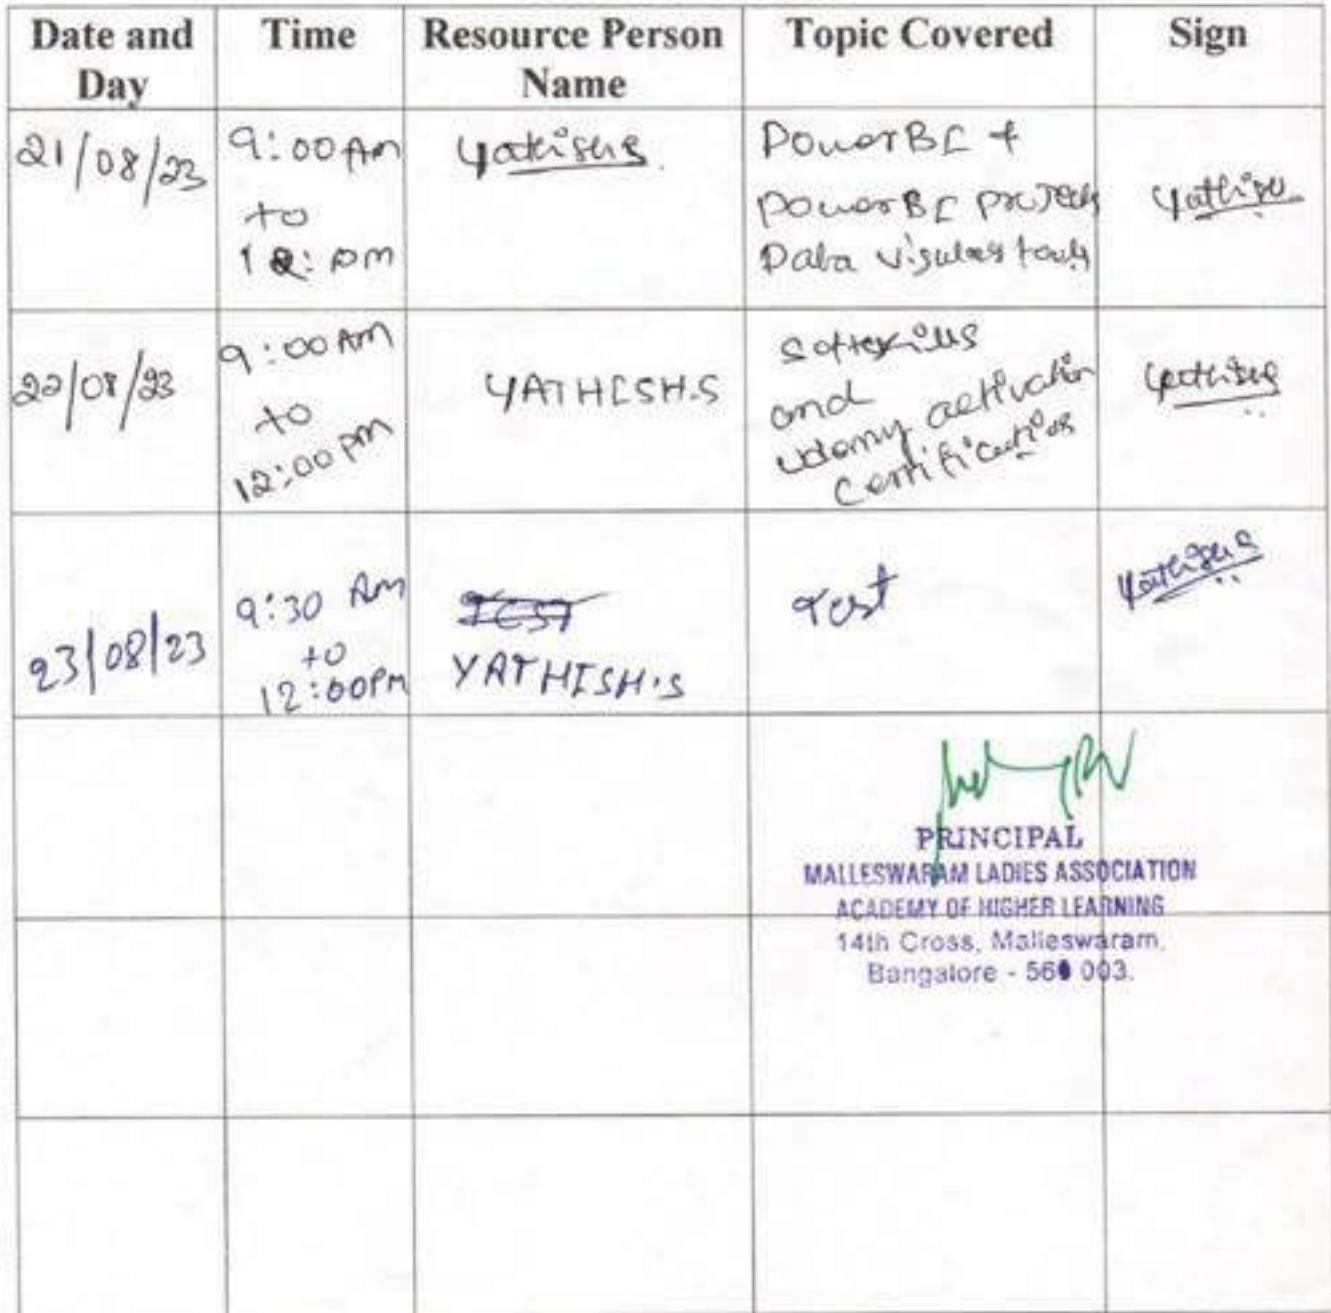 Date and Day
Time
Resource Person Name
Topic Covered
Sign
21/08/23
9:00 Am
to
12: pm
Yathish S
PowerBI +
PowerBI projects
Data visulas tools
Yathish
22/08/23
9:00 AM
to
12:00 pm
YATHISH.S
Softskills
and
udemy activation
Certifications
Yathish S
23/08/23
9:30 Am
to
12:00 Pm
TEST
YATHISH.S
Test
Yathish S
PRINCIPAL
MALLESWARAM LADIES ASSOCIATION
ACADEMY OF HIGHER LEARNING
14th Cross, Malleswaram,
Bangalore - 560 003.